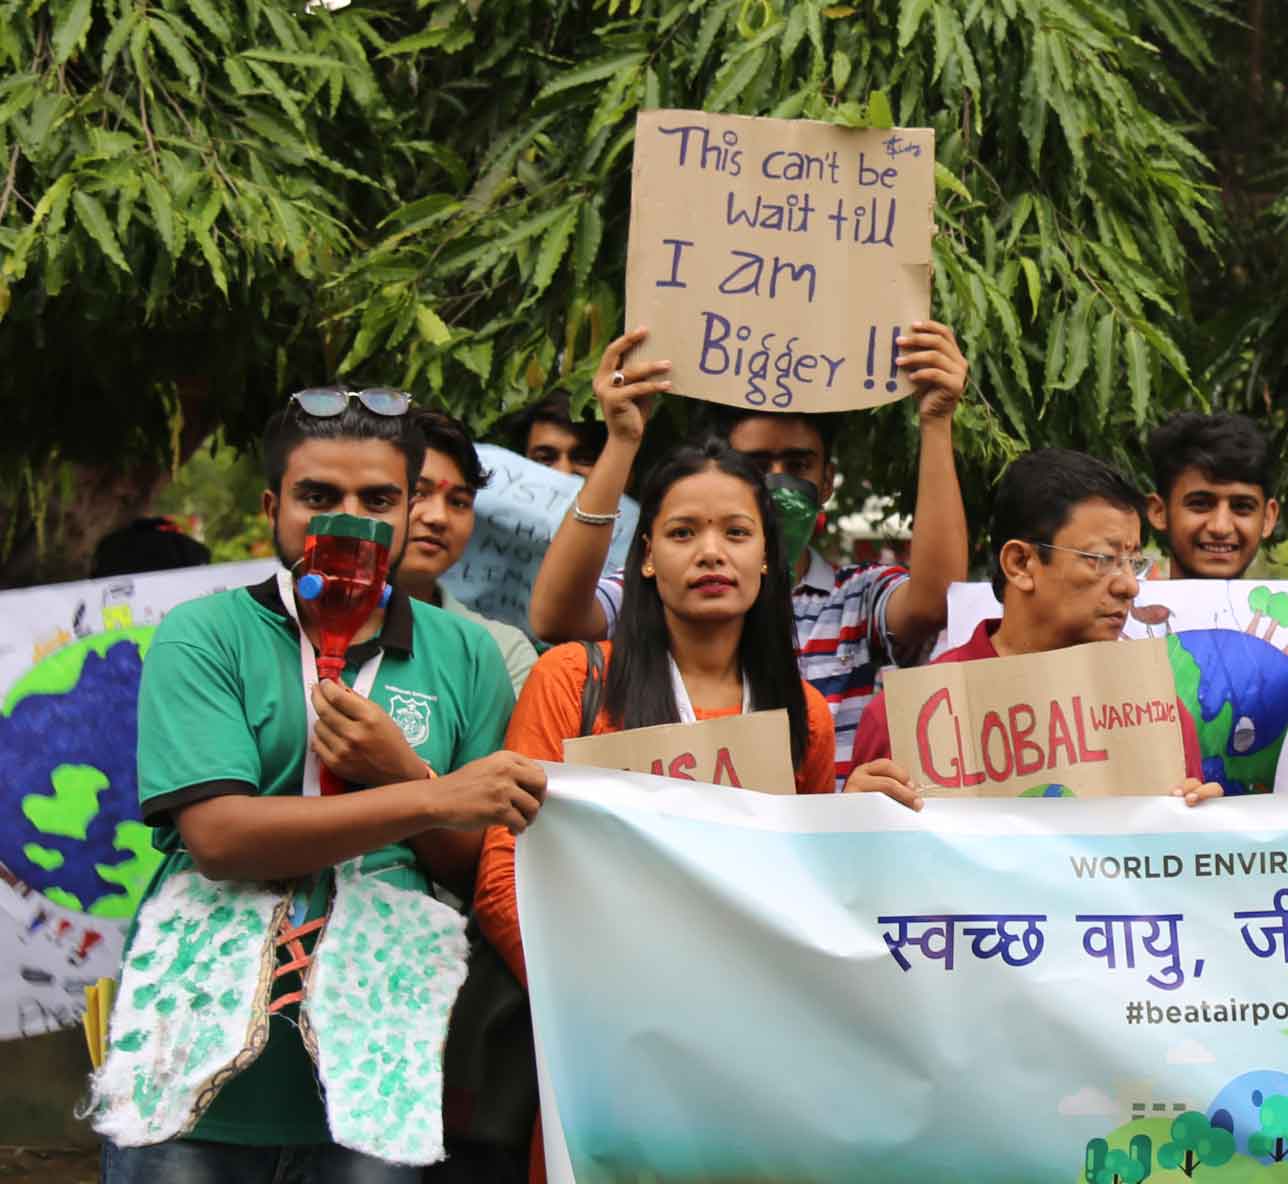 This can't be
wait till
I am
Bigger !!
YST
CHA
NO
LIM
CH
GLOBAL WARMING
USA
WORLD ENVIR
स्वच्छ वायु, जी
#beatairpo